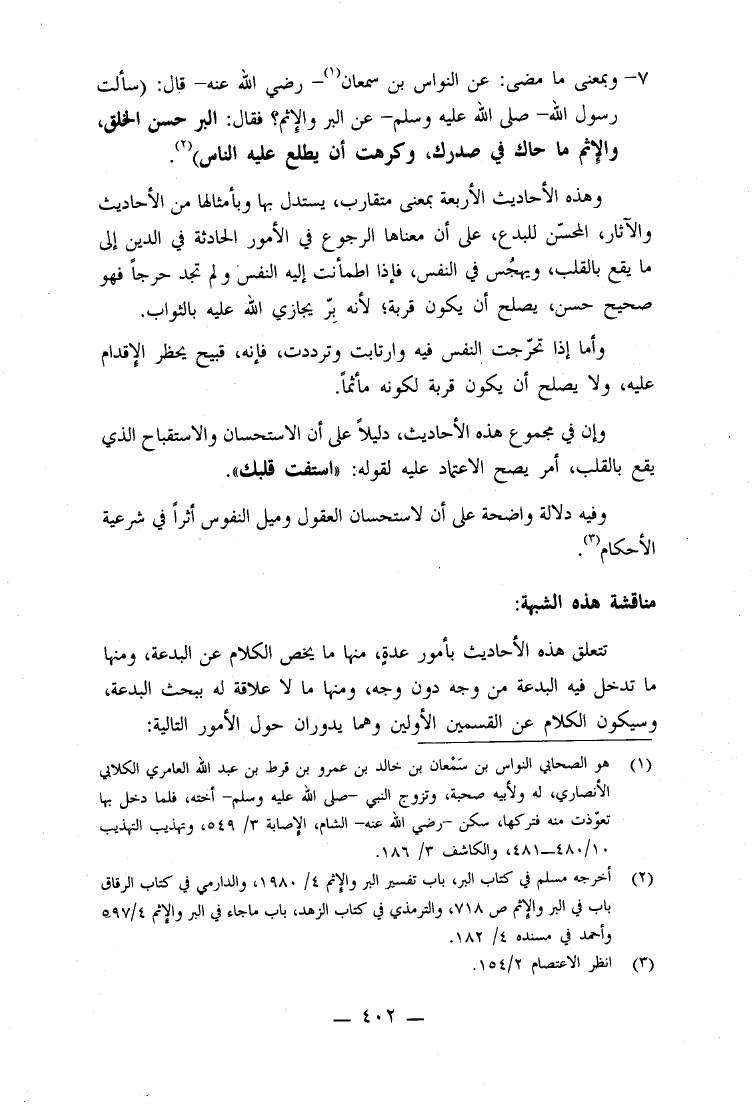 ٧- وبمعنى ما مضى: عن النواس بن سمعان(١)- رضي الله عنه- قال: (سألت
رسول الله- صلى الله عليه وسلم- عن البر والإثم؟ فقال: البر حسن الخلق،
والإثم ما حاك في صدرك، وكرهت أن يطلع عليه الناس)(٢).
وهذه الأحاديث الأربعة بمعنى متقارب، يستدل بها وبأمثالها من الأحاديث
والآثار، المحسّن للبدع، على أن معناها الرجوع في الأمور الحادثة في الدين إلى
ما يقع بالقلب، ويهجُس في النفس، فإذا اطمأنت إليه النفس ولم تجد حرجاً فهو
صحيح حسن، يصلح أن يكون قربة؛ لأنه بِرّ يجازي الله عليه بالثواب.
وأما إذا تحرّجت النفس فيه وارتابت وترددت، فإنه، قبيح يحظر الإقدام
عليه، ولا يصلح أن يكون قربة لكونه مأثماً.
وإن في مجموع هذه الأحاديث، دليلاً على أن الاستحسان والاستقباح الذي
يقع بالقلب، أمر يصح الاعتماد عليه لقوله: «استفت قلبك».
وفيه دلالة واضحة على أن لاستحسان العقول وميل النفوس أثراً في شرعية
الأحكام(٣).
مناقشة هذه الشبهة:
تتعلق هذه الأحاديث بأمور عدةٍ، منها ما يخص الكلام عن البدعة، ومنها
ما تدخل فيه البدعة من وجه دون وجه، ومنها ما لا علاقة له ببحث البدعة،
وسيكون الكلام عن القسمين الأولين وهما يدوران حول الأمور التالية:
(١) هو الصحابي النواس بن سَمْعان بن خالد بن عمرو بن قرط بن عبد الله العامري الكلابي
الأنصاري، له ولأبيه صحبة، وتزوج النبي -صلى الله عليه وسلم- أخته، فلما دخل بها
تعوّذت منه فتركها، سكن -رضي الله عنه- الشام، الإصابة ٣/ ٥٤٩، وتهذيب التهذيب
١٠/ ٤٨٠—٤٨١، والكاشف ٣/ ١٨٦.
(٢) أخرجه مسلم في كتاب البر، باب تفسير البر والإثم ٤/ ١٩٨٠، والدارمي في كتاب الرقاق
باب في البر والإثم ص ٧١٨، والترمذي في كتاب الزهد، باب ماجاء في البر والإثم ٤/ ٥٩٧
وأحمد في مسنده ٤/ ١٨٢.
(٣) انظر الاعتصام ٢/ ١٥٤.
— ٤٠٢ —